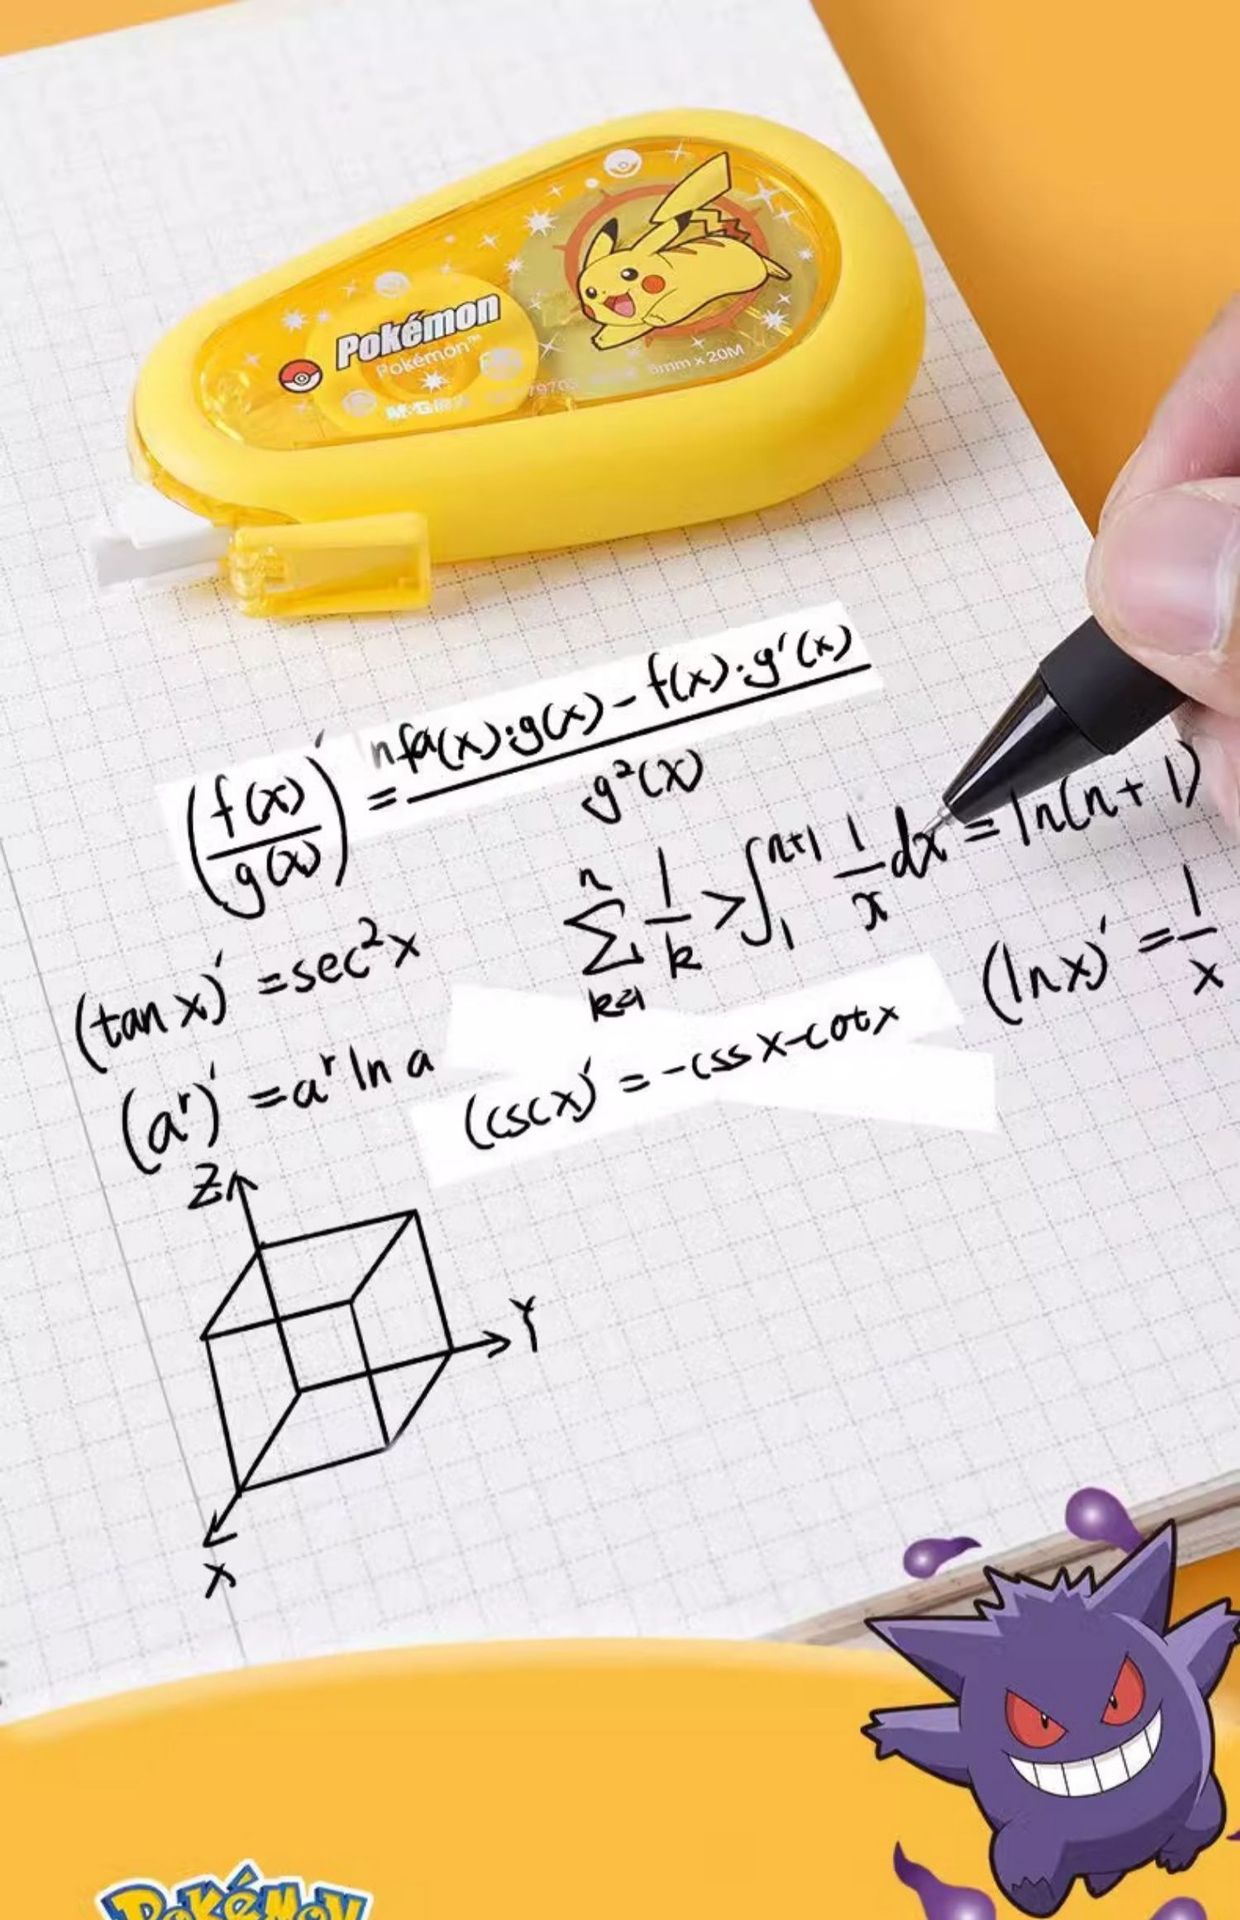 Pokémon
Pokémon™
M&G
6mm x 20M
(f(x)/g(x))' = nfa(x):g(x) - f(x)·g'(x) / g²(x)
n
∑ 1/k > ∫₁ⁿ⁺¹ 1/x dx = ln(n+1)
k=1
(tan x)' = sec²x
(ln x)' = 1/x
(aʳ)' = aʳ ln a
(cscx)' = -css x-cotx
Z
Y
X
POKéMON